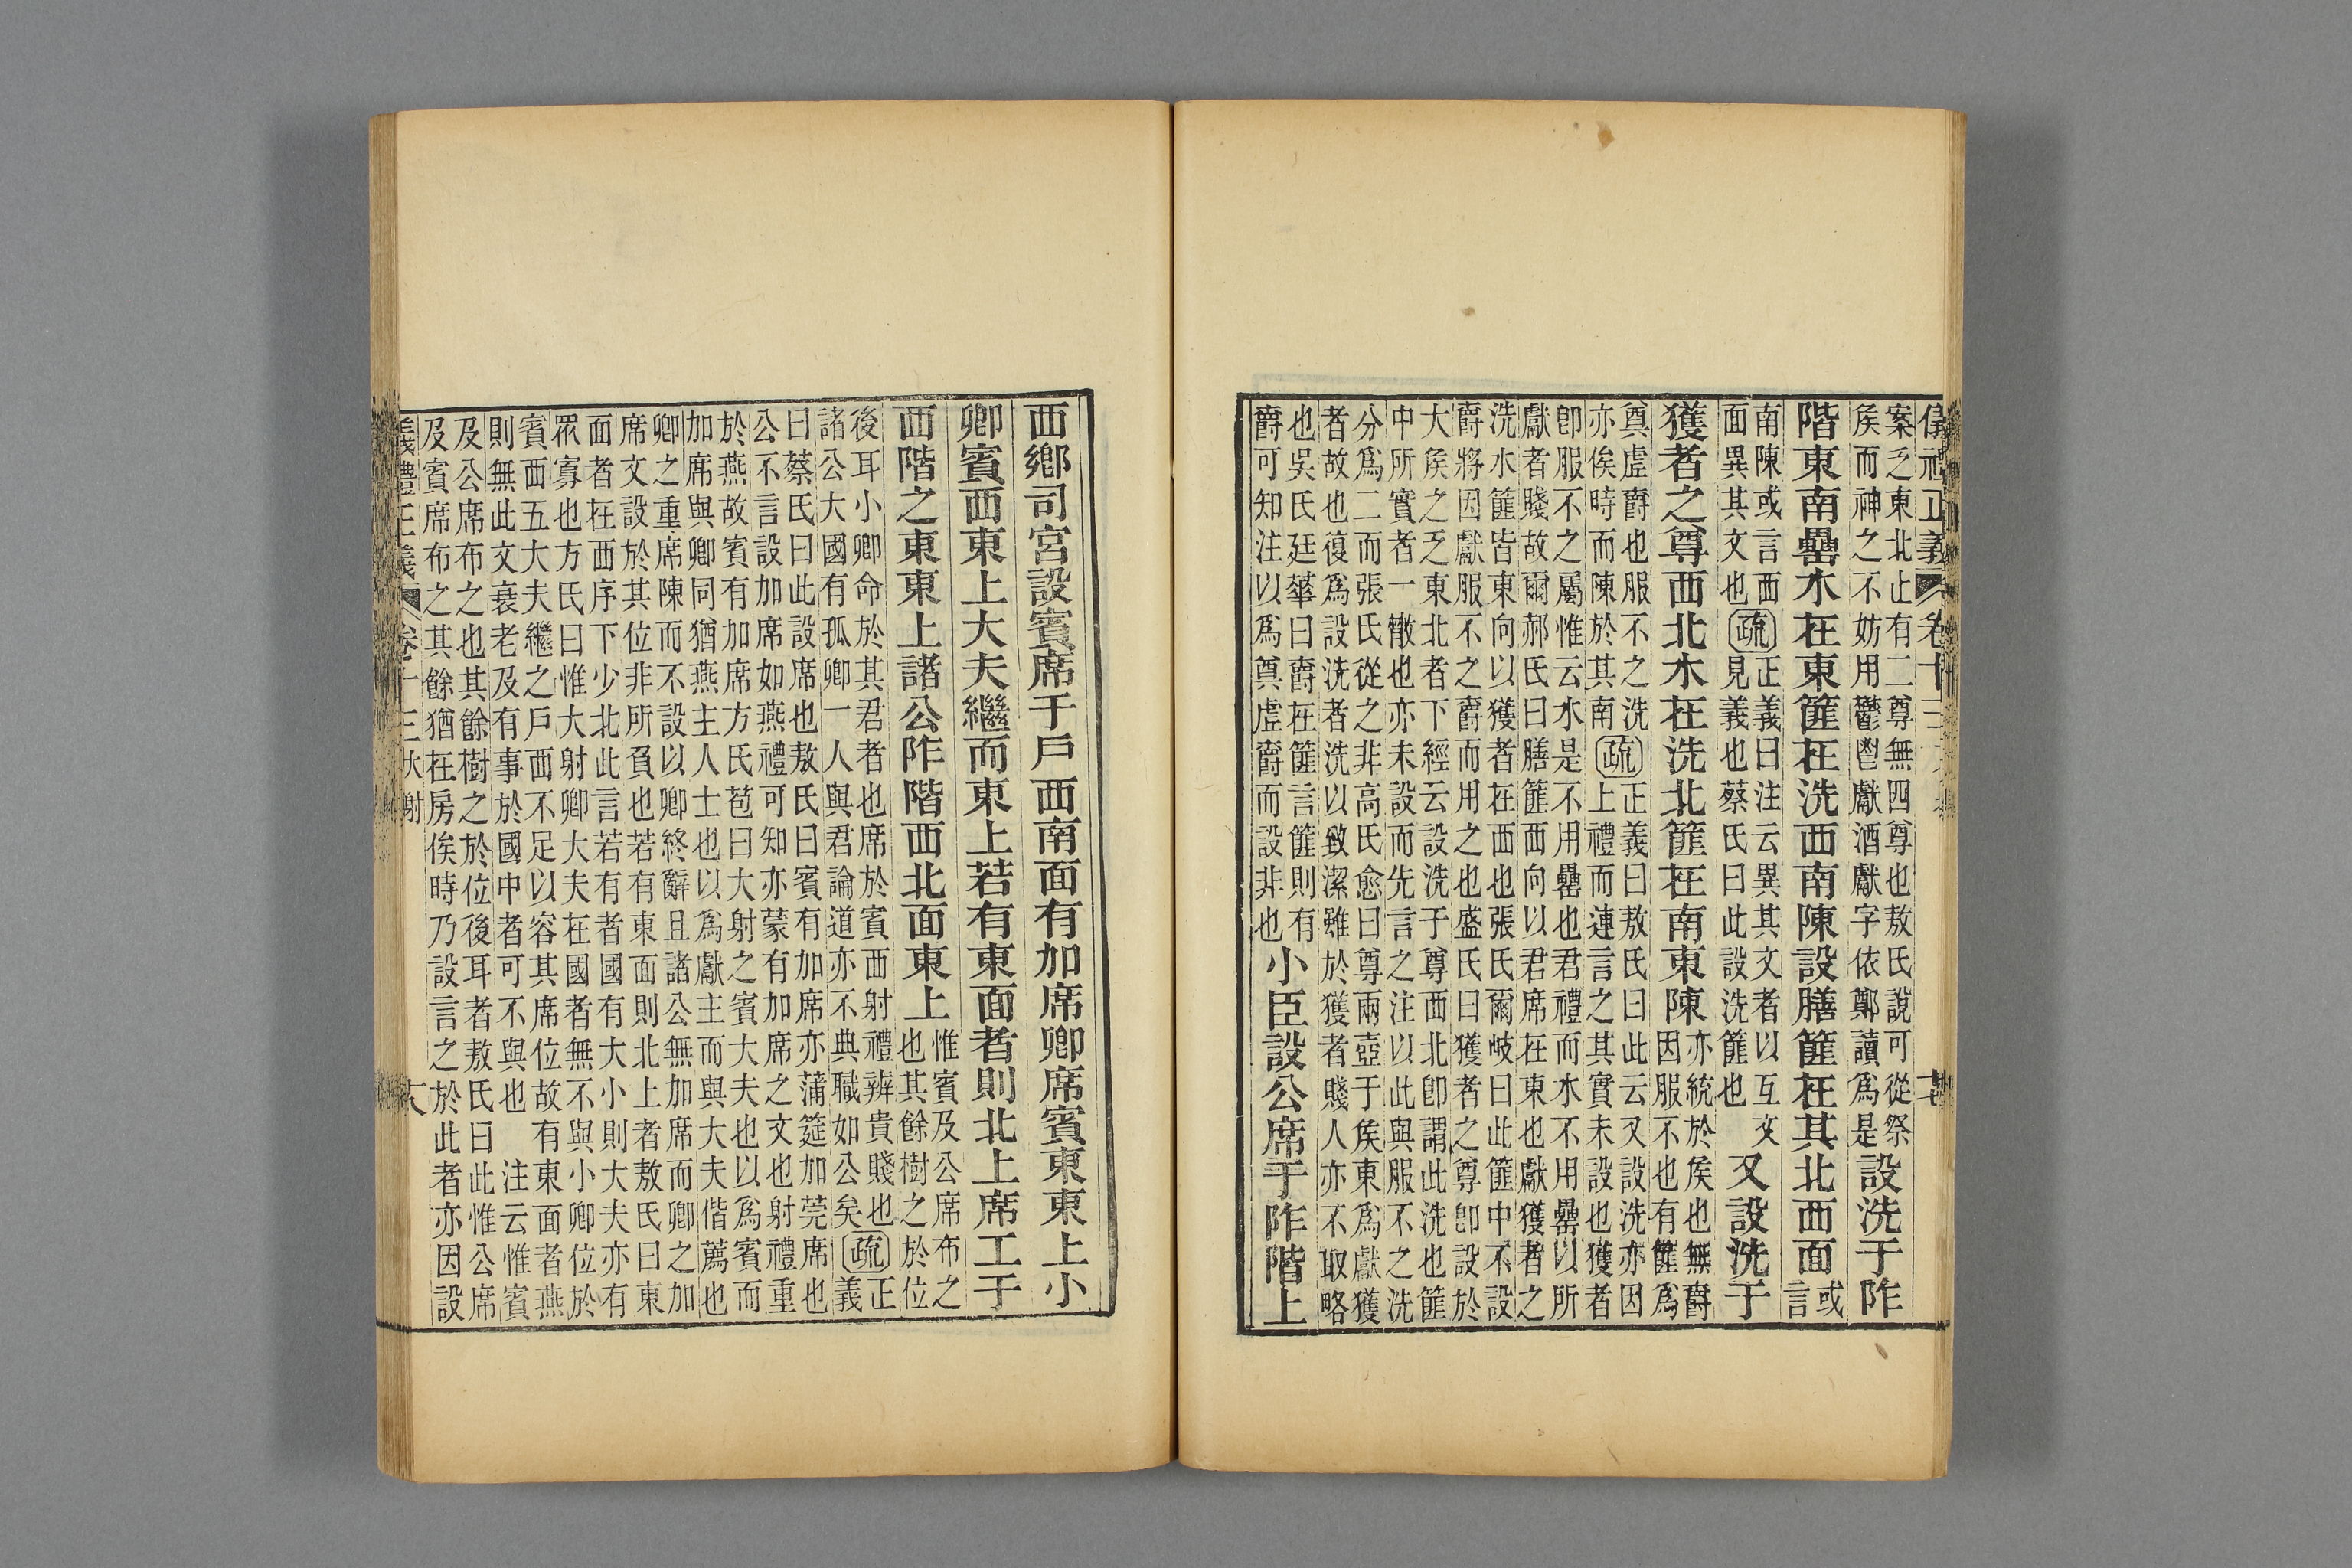 儀禮正義 卷十三 十七
案乏東北止有二尊無四尊也敖氏說可從祭
矦而神之不妨用鬱鬯獻酒獻字依鄭讀爲是設洗于阼
階東南罍水在東篚在洗西南陳設膳篚在其北西面或言
南陳或言西面異其文也疏正義曰注云異其文者以互文見義也蔡氏曰此設洗篚也又設洗于
獲者之尊西北水在洗北篚在南東陳亦統於矦也無爵因服不也有篚爲
奠虛爵也服不之洗亦俟時而陳於其南疏正義曰敖氏曰此云又設洗亦因上禮而連言之其實未設也獲者
卽服不之屬惟云水是不用罍也君禮而水不用罍以所
獻者賤故爾郝氏曰膳篚西向以君席在東也獻獲者之
洗水篚皆東向以獲者在西也張氏爾岐曰此篚中不設
爵將因獻服不之爵而用之也盛氏曰獲者之尊卽設於
大矦之乏東北者下經云設洗于尊西北卽謂此洗也篚
中所實者一散也亦未設而先言之注以此與服不之洗
分爲二而張氏從之非高氏愈曰尊兩壺于矦東爲獻獲
者故也復爲設洗者洗以致潔雖於獲者賤人亦不取略
也吳氏廷華曰爵在篚言篚則有爵可知注以爲奠虛爵而設非也小臣設公席于阼階上
西鄉司宮設賓席于戶西南面有加席卿席賓東東上小
卿賓西東上大夫繼而東上若有東面者則北上席工于
西階之東東上諸公阼階西北面東上惟賓及公席布之也其餘樹之於位
後耳小卿命於其君者也席於賓西射禮辨貴賤也諸公大國有孤卿一人與君論道亦不典職如公矣疏正義
曰蔡氏曰此設席也敖氏曰賓有加席亦蒲筵加莞席也
公不言設加席如燕禮可知亦蒙有加席之文也射禮重
於燕故賓有加席方氏苞曰大射之賓大夫也以爲賓而
加席與卿同猶燕主人士也以爲獻主而與大夫偕薦也
卿之重席陳而不設以卿終辭且諸公無加席而卿之加
席文設於其位非所負也若有東面則北上者敖氏曰東
面者在西序下少北此言若有者國有大小則大夫亦有
眾寡也方氏曰惟大射卿大夫在國者無不與小卿位於
賓西五大夫繼之戶西不足以容其席位故有東面者燕
則無此文衰老及有事於國中者可不與也 注云惟賓
及公席布之也其餘樹之於位後耳者敖氏曰此惟公席
及賓席布之其餘猶在房俟時乃設言之於此者亦因設
義禮正義 卷十三 大射 十八